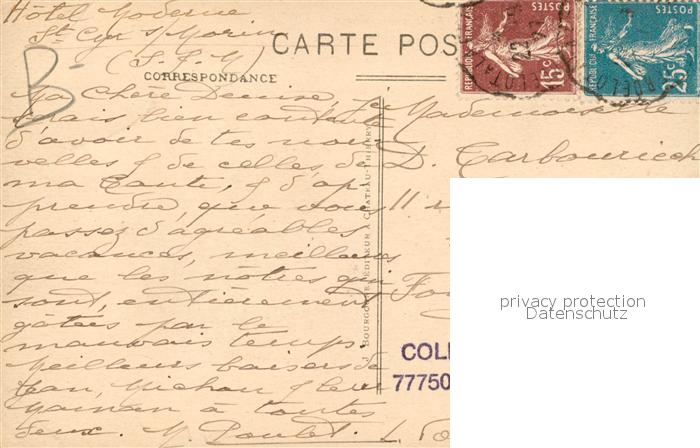 Hôtel Moderne
St Cyr s/ Morin
(S. & M)
CARTE POS
CORRESPONDANCE
B-
Ma Chère Denise, Je
suis bien contente
d'avoir de tes nou
velles & de celles de
ma tante, & d'ap-
prendre, que vous
passez d'agréables
vacances, meilleures
que les nôtres qui
sont, entièrement
gâtées par le
mauvais temps.
Meilleurs baisers de
Jean, Michou & leur
Maman à toutes
deux. M. Poulet.
J. BOURGOGNE, EDITEUR A CHATEAU-THIERRY
Mademoiselle
D. Tarbouriech
11 r
REPUBLIQUE FRANÇAISE
POSTES
15c
REPUBLIQUE FRANÇAISE
POSTES
25c
COLL
77750
privacy protection
Datenschutz